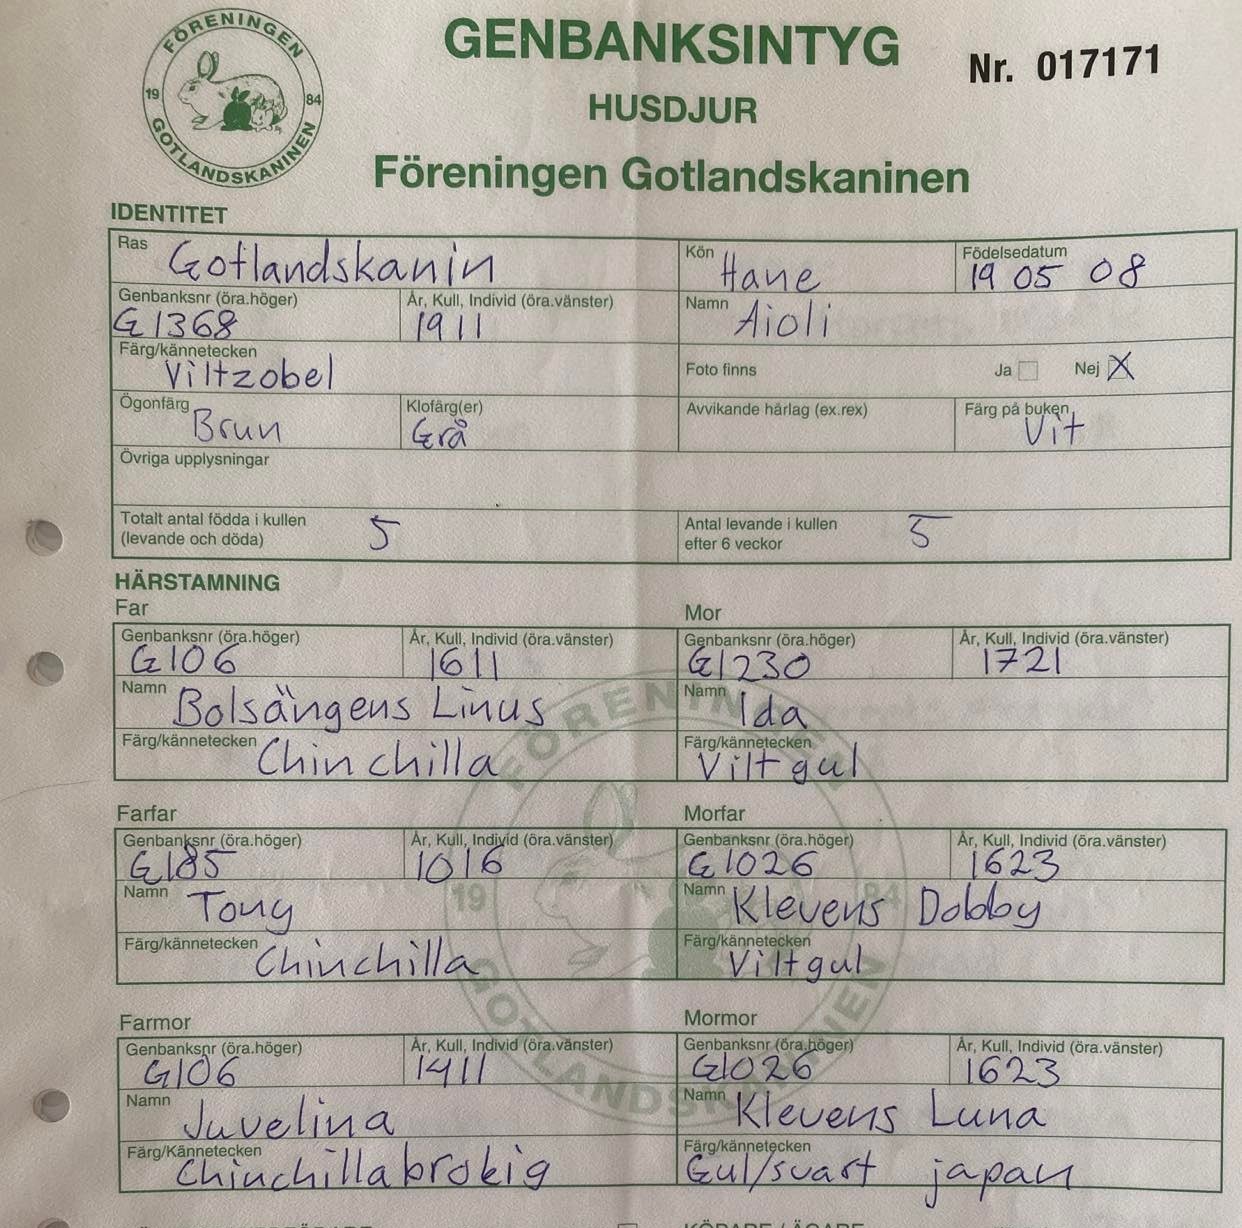 FÖRENINGEN
19 84
GOTLANDSKANINEN
GENBANKSINTYG
Nr. 017171
HUSDJUR
Föreningen Gotlandskaninen
IDENTITET
Ras Gotlandskanin
Kön Hane
Födelsedatum 19 05 08
Genbanksnr (öra.höger) G1368
År, Kull, Individ (öra.vänster) 1911
Namn Aioli
Färg/kännetecken Viltzobel
Foto finns Ja Nej X
Ögonfärg Brun
Klofärg(er) Grå
Avvikande hårlag (ex.rex)
Färg på buken Vit
Övriga upplysningar
Totalt antal födda i kullen
(levande och döda) 5
Antal levande i kullen
efter 6 veckor 5
HÄRSTAMNING
Far
Genbanksnr (öra.höger) G106
År, Kull, Individ (öra.vänster) 1611
Namn Bolsängens Linus
Färg/kännetecken Chinchilla
Mor
Genbanksnr (öra.höger) G1230
År, Kull, Individ (öra.vänster) 1721
Namn Ida
Färg/kännetecken Viltgul
Farfar
Genbanksnr (öra.höger) G185
År, Kull, Individ (öra.vänster) 1016
Namn Tony
Färg/kännetecken Chinchilla
Morfar
Genbanksnr (öra.höger) G1026
År, Kull, Individ (öra.vänster) 1623
Namn Klevens Dobby
Färg/kännetecken Viltgul
Farmor
Genbanksnr (öra.höger) G106
År, Kull, Individ (öra.vänster) 1411
Namn Juvelina
Färg/Kännetecken Chinchillabrokig
Mormor
Genbanksnr (öra.höger) G1026
År, Kull, Individ (öra.vänster) 1623
Namn Klevens Luna
Färg/kännetecken Gul/svart japan
FÖRENINGEN
19 84
GOTLANDSKANINEN